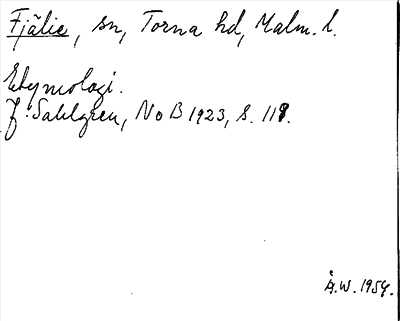 Fjälie, sn, Torna hd, Malm. l.
Etymologi.
J. Sahlgren, NoB 1923, s. 118.
Å.W. 1954.